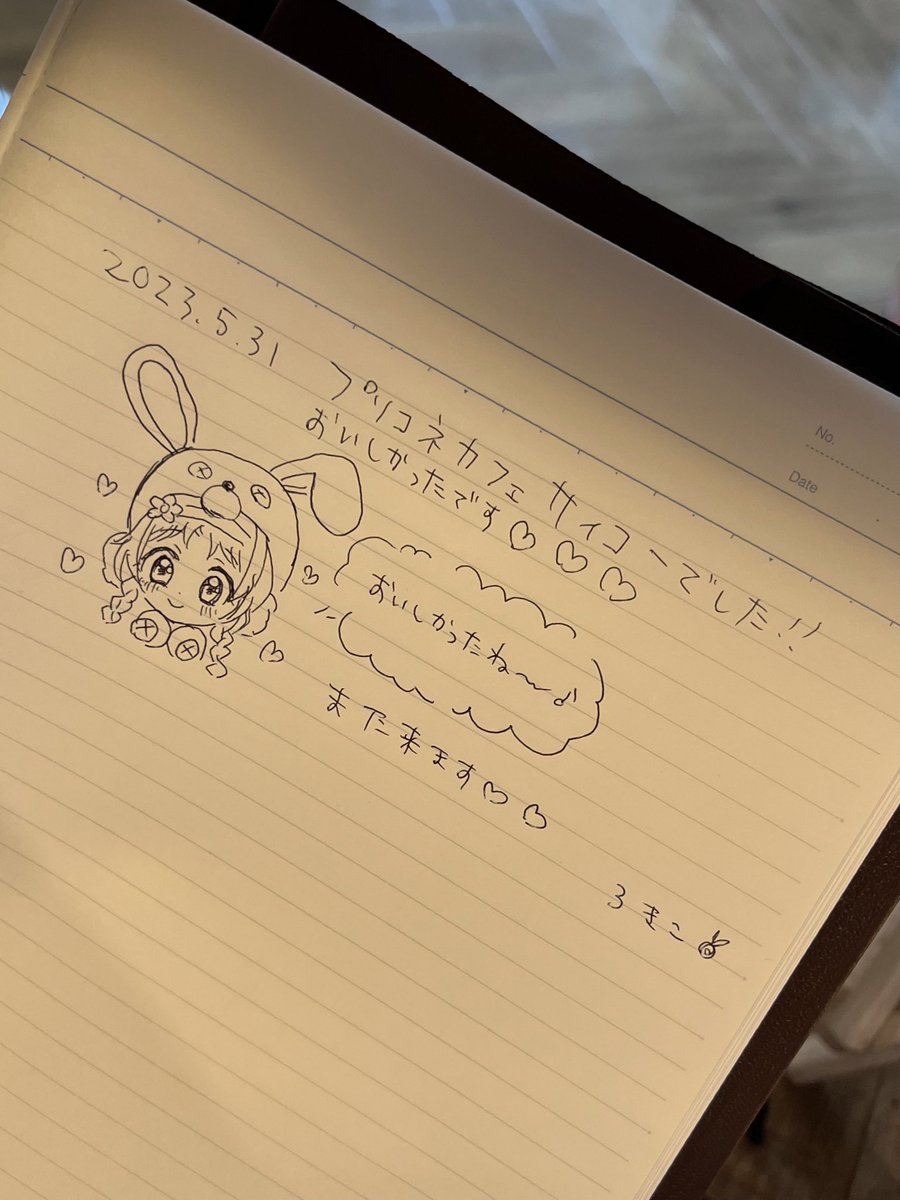 No.
Date
2023.5.31 プリコネカフェ サイコーでした!!
おいしかったです♡♡♡
おいしかったね〜♪
また来ます♡♡
ろきこ